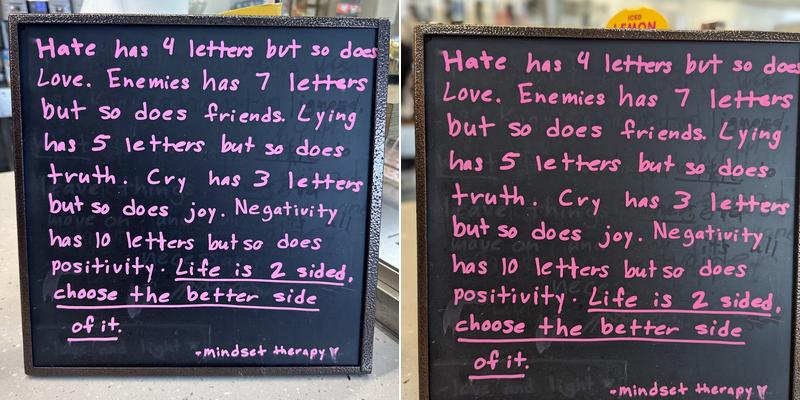 Hate has 4 letters but so does
Love. Enemies has 7 letters
but so does friends. Lying
has 5 letters but so does
truth. Cry has 3 letters
but so does joy. Negativity
has 10 letters but so does
positivity. Life is 2 sided,
choose the better side
of it.
-mindset therapy
ICED
LEMON
Hate has 4 letters but so does
Love. Enemies has 7 letters
but so does friends. Lying
has 5 letters but so does
truth. Cry has 3 letters
but so does joy. Negativity
has 10 letters but so does
positivity. Life is 2 sided,
choose the better side
of it.
-mindset therapy